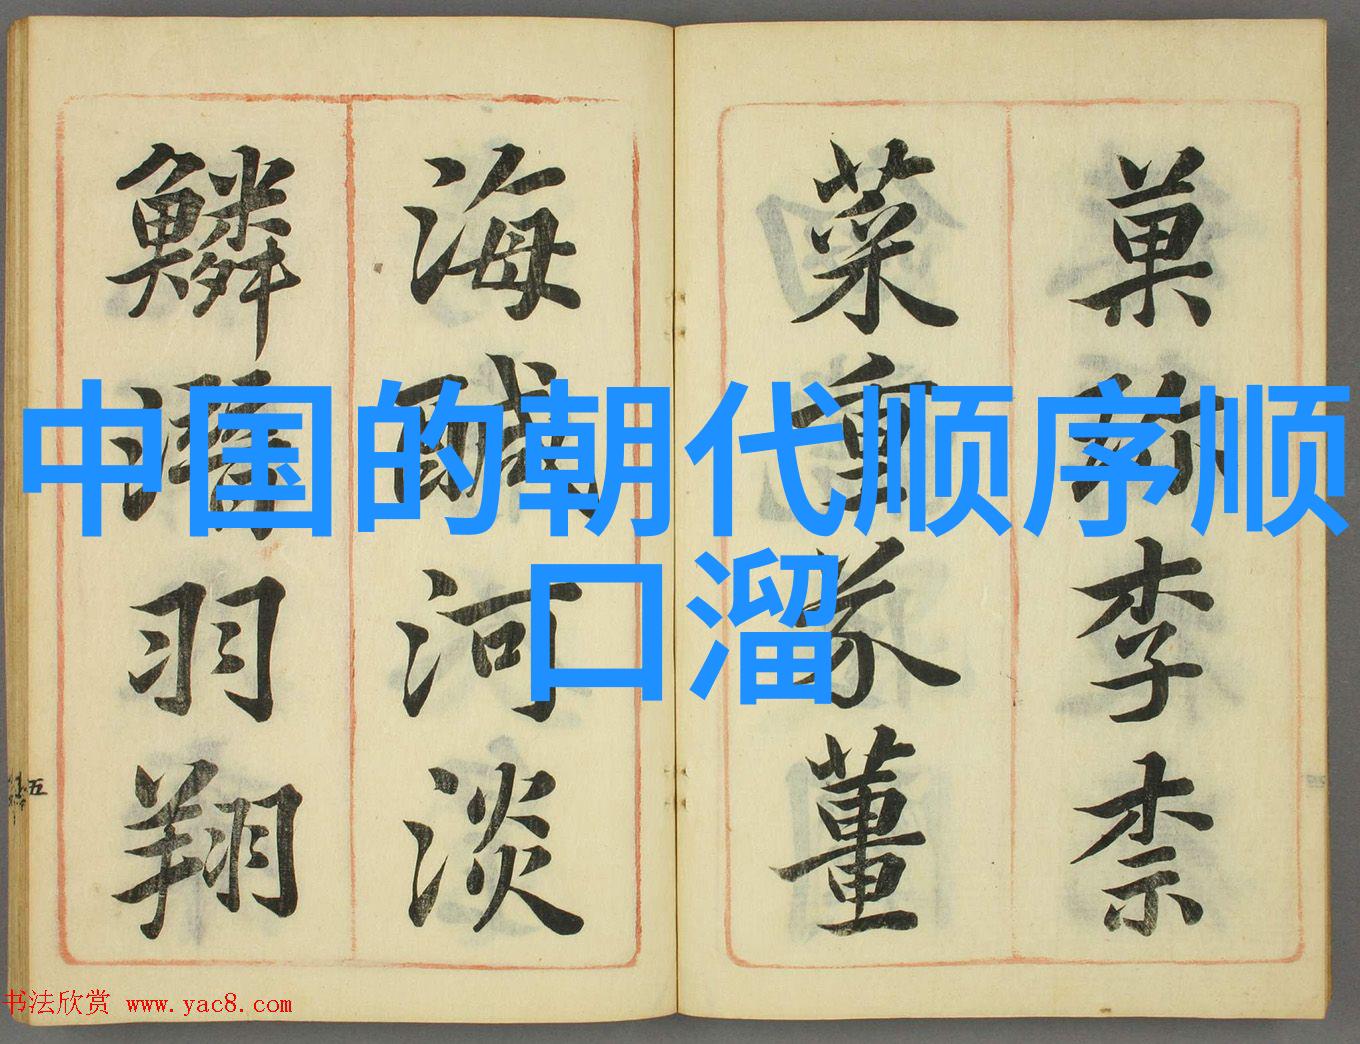 菓珎李柰
菜重芥薑
海醎河淡
鱗潛羽翔
五
中国的朝代顺序顺
口溜
书法欣赏 www.yac8.com